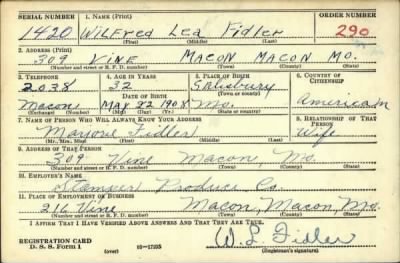 SERIAL NUMBER 1. NAME (Print) ORDER NUMBER
1420 WILFRED Leo Fidler 290
(First) (Middle) (Last)
2. ADDRESS (Print)
309 VINE MACON MACON MO.
(Number and street or R. F. D. number) (Town) (County) (State)
3. TELEPHONE 4. AGE IN YEARS 5. PLACE OF BIRTH 6. COUNTRY OF CITIZENSHIP
2038 32 Salisbury
(Town or county)
DATE OF BIRTH
Macon MAY 22 1908 Mo. American
(Exchange) (Number) (Mo.) (Day) (Yr.) (State or country)
7. NAME OF PERSON WHO WILL ALWAYS KNOW YOUR ADDRESS 8. RELATIONSHIP OF THAT PERSON
Marjorie Fidler Wife
(Mr., Mrs., Miss) (First) (Middle) (Last)
9. ADDRESS OF THAT PERSON
309 Vine Macon, Mo.
(Number and street or R. F. D. number) (Town) (County) (State)
10. EMPLOYER'S NAME
Stamper Produce Co.
11. PLACE OF EMPLOYMENT OR BUSINESS
216 Vine Macon, Macon, Mo.
(Number and street or R. F. D. number) (Town) (County) (State)
I AFFIRM THAT I HAVE VERIFIED ABOVE ANSWERS AND THAT THEY ARE TRUE.
REGISTRATION CARD
D. S. S. FORM 1 (over) 16-17105 W. L. Fidler
(Registrant's signature)